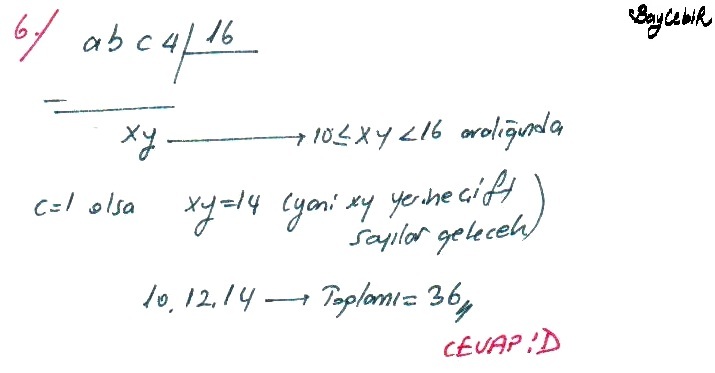 BayCebiR
6./ abc4 | 16
xy → 10≤xy<16 aralığında
c=1 olsa xy=14 (yani xy yerine çift
sayılar gelecek)
10, 12, 14 → Toplamı = 36,,
CEVAP: D